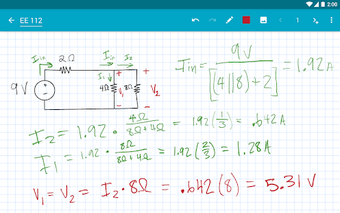 2:00
EE 112
1
I_in 2Ω I_in I_2
9V I_1 4Ω V_1 8Ω V_2
I_in = 9V / [(4||8)+2] = 1.92A
I_2 = 1.92 · 4Ω / 8Ω+4Ω = 1.92 (1/3) = .642A
I_1 = 1.92 · 8Ω / 8Ω+4Ω = 1.92 (2/3) = 1.28A
V_1 = V_2 = I_2 · 8Ω = .642 (8) = 5.31 V